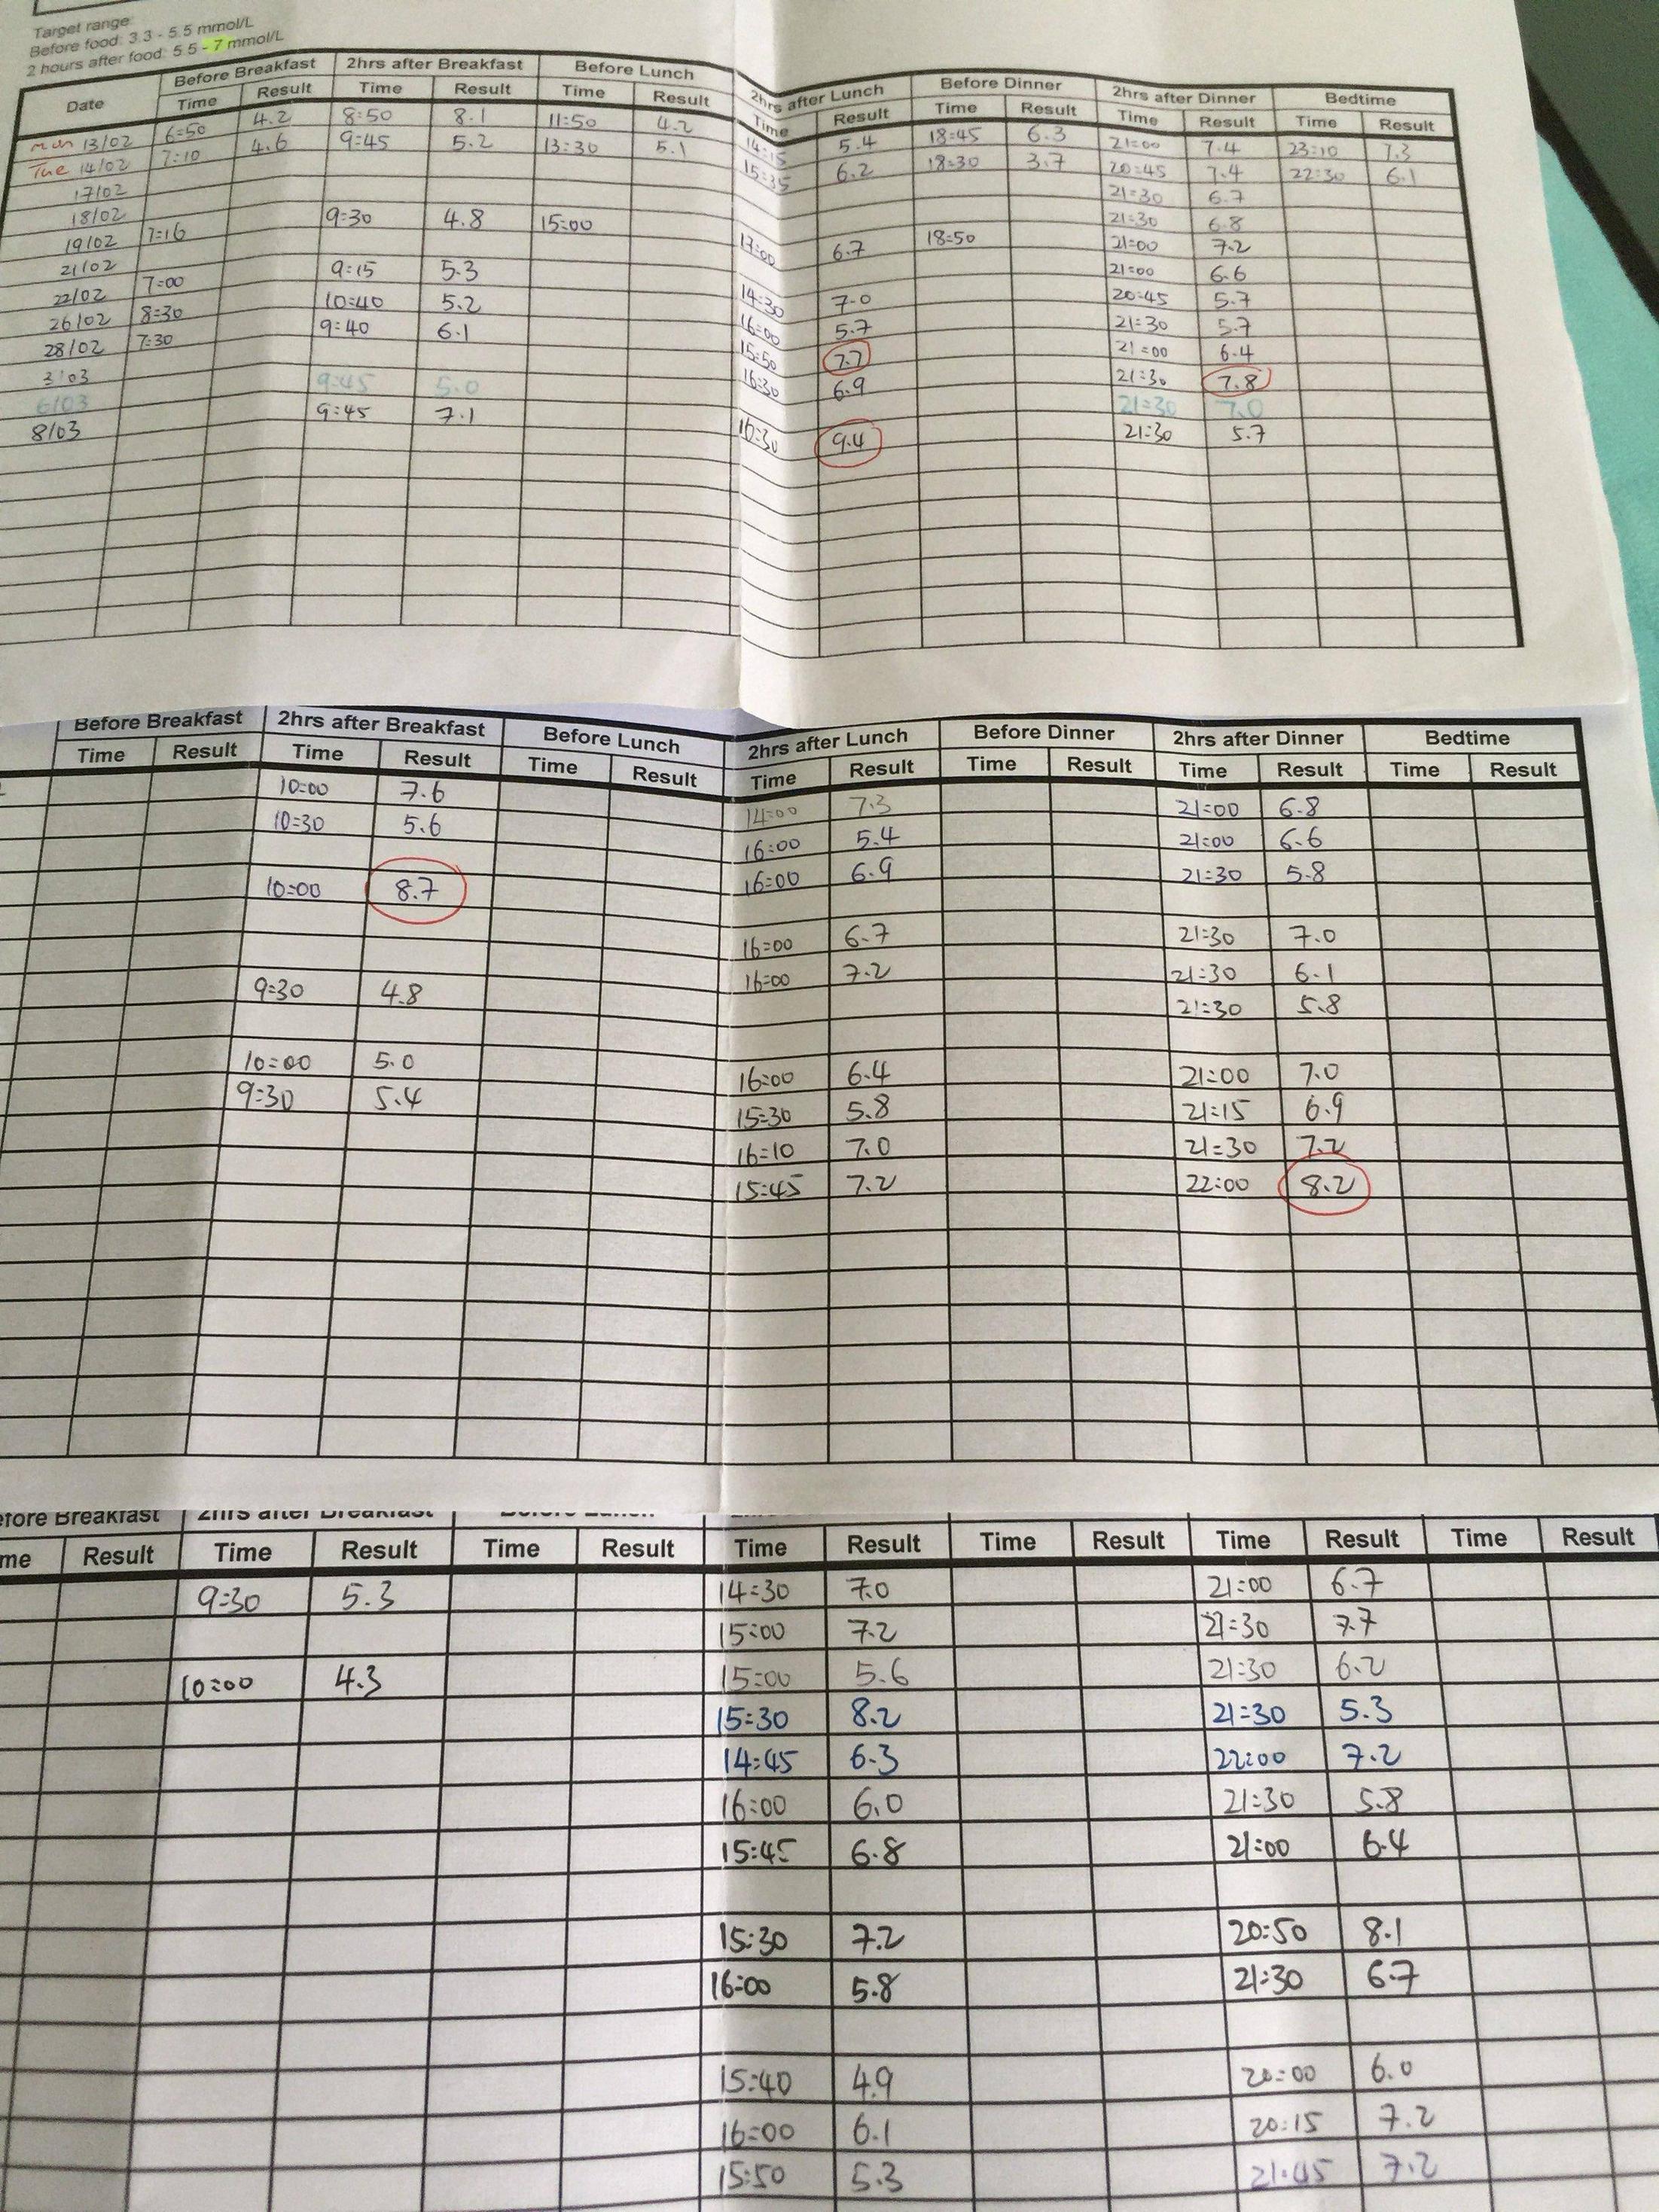 Target range
Before food: 3.3 - 5.5 mmol/L
2 hours after food: 5.5 - 7 mmol/L
Date Before Breakfast 2hrs after Breakfast Before Lunch 2hrs after Lunch Before Dinner 2hrs after Dinner Bedtime
Time Result Time Result Time Result Time Result Time Result Time Result Time Result
Mon 13/02 6:50 4.2 8:50 8.1 11:50 4.2 14:15 5.4 18:45 6.3 21:00 7.4 23:10 7.3
Tue 14/02 7:10 4.6 9:45 5.2 13:30 5.1 15:35 6.2 18:30 3.7 20:45 7.4 22:30 6.1
17/02 21:30 6.7
18/02 9:30 4.8 15:00 21:30 6.8
19/02 7:16 17:00 6.7 18:50 21:00 7.2
21/02 9:15 5.3 21:00 6.6
22/02 7:00 10:40 5.2 14:30 7.0 20:45 5.7
26/02 8:30 9:40 6.1 16:00 5.7 21:30 5.7
28/02 7:30 15:50 7.7 21:00 6.4
3/03 9:45 5.0 16:30 6.9 21:30 7.8
6/03 9:45 7.1 21:30 7.0
8/03 16:30 9.4 21:30 5.7
Before Breakfast 2hrs after Breakfast Before Lunch 2hrs after Lunch Before Dinner 2hrs after Dinner Bedtime
Time Result Time Result Time Result Time Result Time Result Time Result Time Result
10:00 7.6 14:00 7.3 21:00 6.8
10:30 5.6 16:00 5.4 21:00 6.6
16:00 6.9 21:30 5.8
10:00 8.7
16:00 6.7 21:30 7.0
16:00 7.2 21:30 6.1
9:30 4.8 21:30 5.8
10:00 5.0 16:00 6.4 21:00 7.0
9:30 5.4 15:30 5.8 21:15 6.9
16:10 7.0 21:30 7.2
15:45 7.2 22:00 8.2
efore Breakfast 2hrs after Breakfast Before Lunch
me Result Time Result Time Result Time Result Time Result Time Result Time Result
9:30 5.3 14:30 7.0 21:00 6.7
15:00 7.2 21:30 7.7
10:00 4.3 15:00 5.6 21:30 6.2
15:30 8.2 21:30 5.3
14:45 6.3 22:00 7.2
16:00 6.0 21:30 5.8
15:45 6.8 21:00 6.4
15:30 7.2 20:50 8.1
16:00 5.8 21:30 6.7
15:40 4.9 20:00 6.0
16:00 6.1 20:15 7.2
15:50 5.3 21:45 7.2